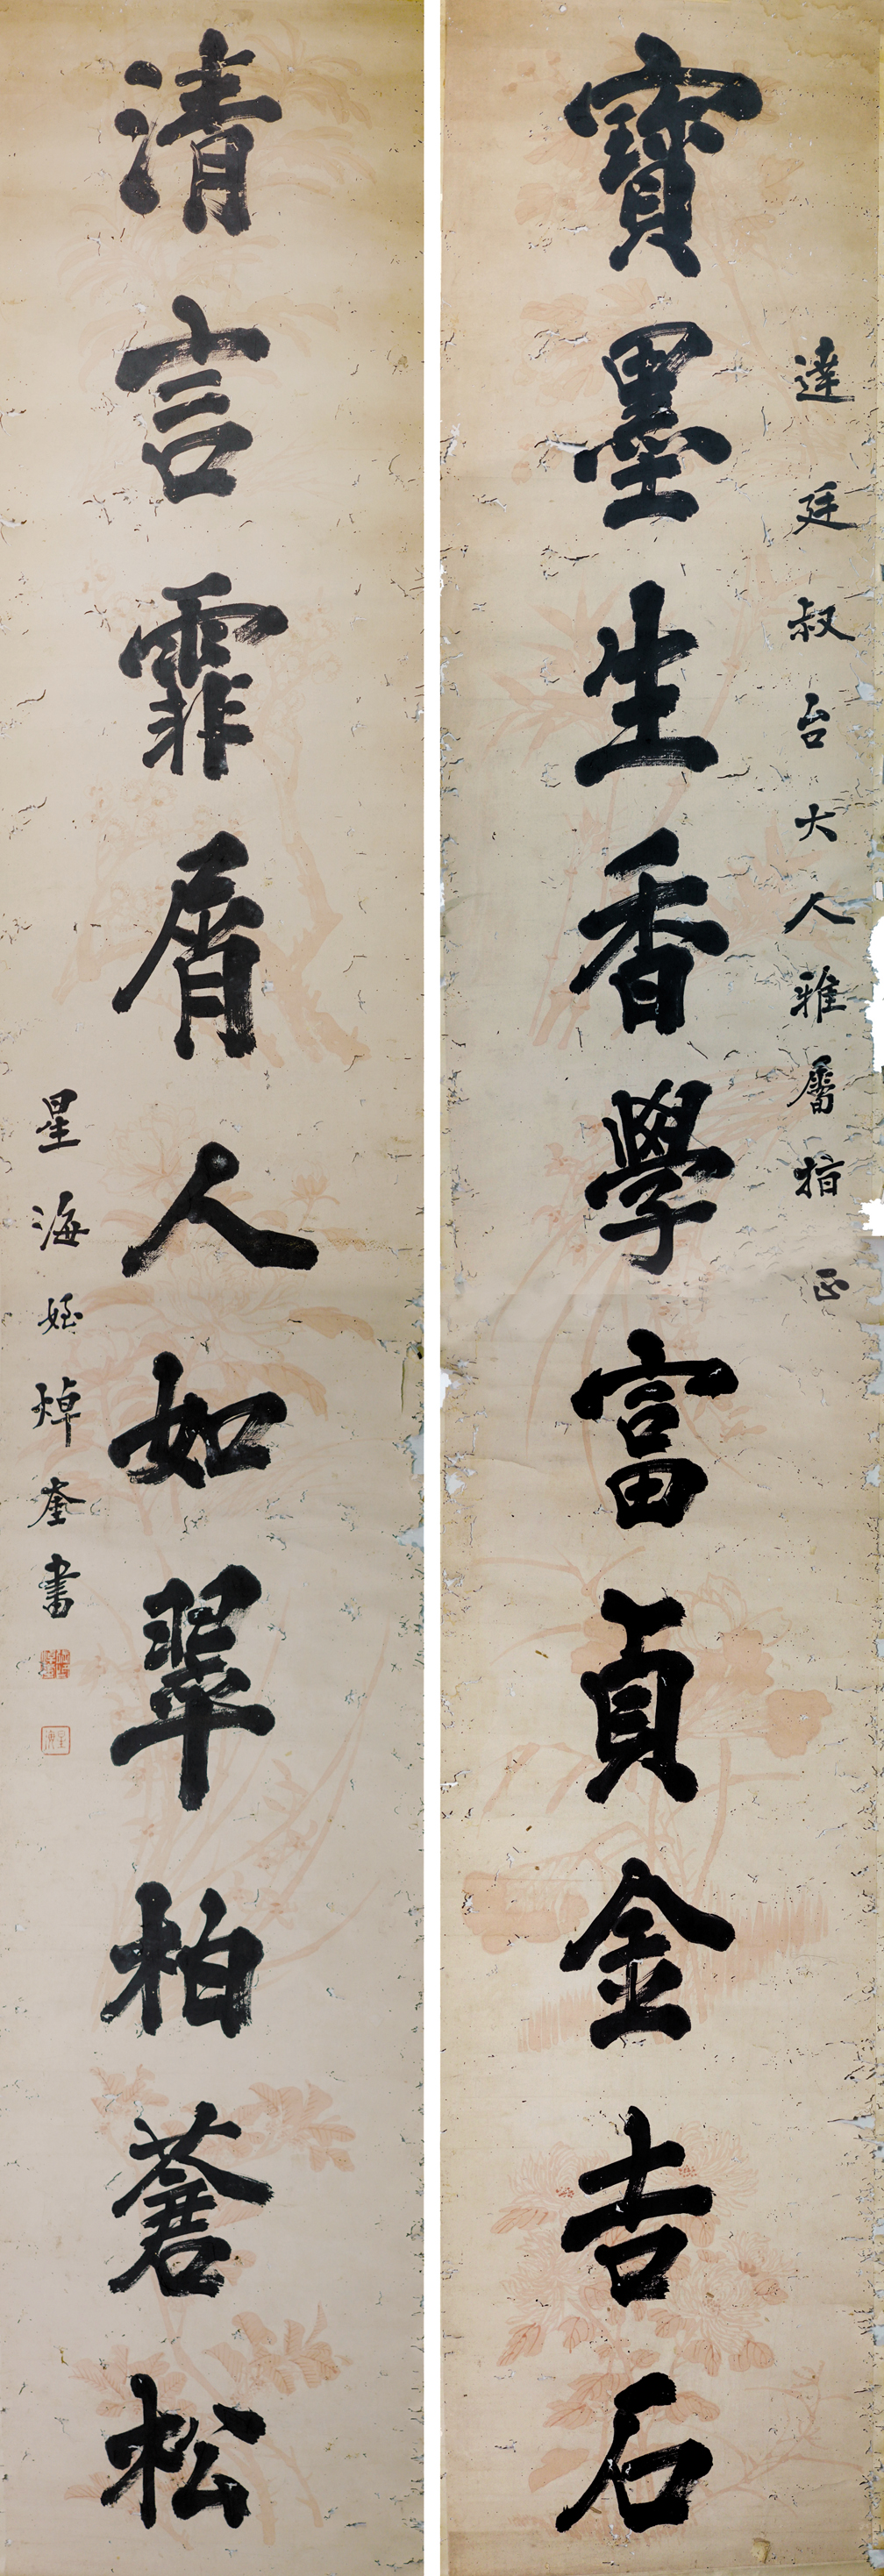 達廷叔台大人雅屬指正
寶墨生香學富貞金吉石
清言霏屑人如翠柏蒼松
星海姪焯奎書